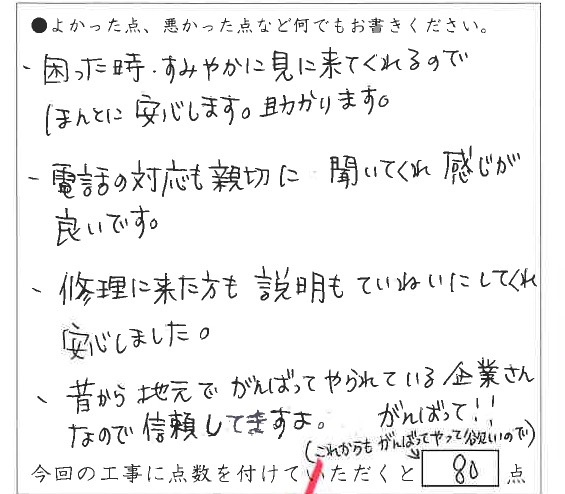 ●よかった点、悪かった点など何でもお書きください。
、困った時、すみやかに見に来てくれるので
ほんとに安心します。助かります。
、電話の対応も親切に 聞いてくれ 感じが
良いです。
、修理に来た方も 説明も ていねいにしてくれ
安心しました。
、昔から 地元で がんばって やられている 企業さん
なので信頼してきますよ。 がんばって!!
(これからも がんばってやって欲しいので)
今回の工事に点数を付けていただくと 80 点